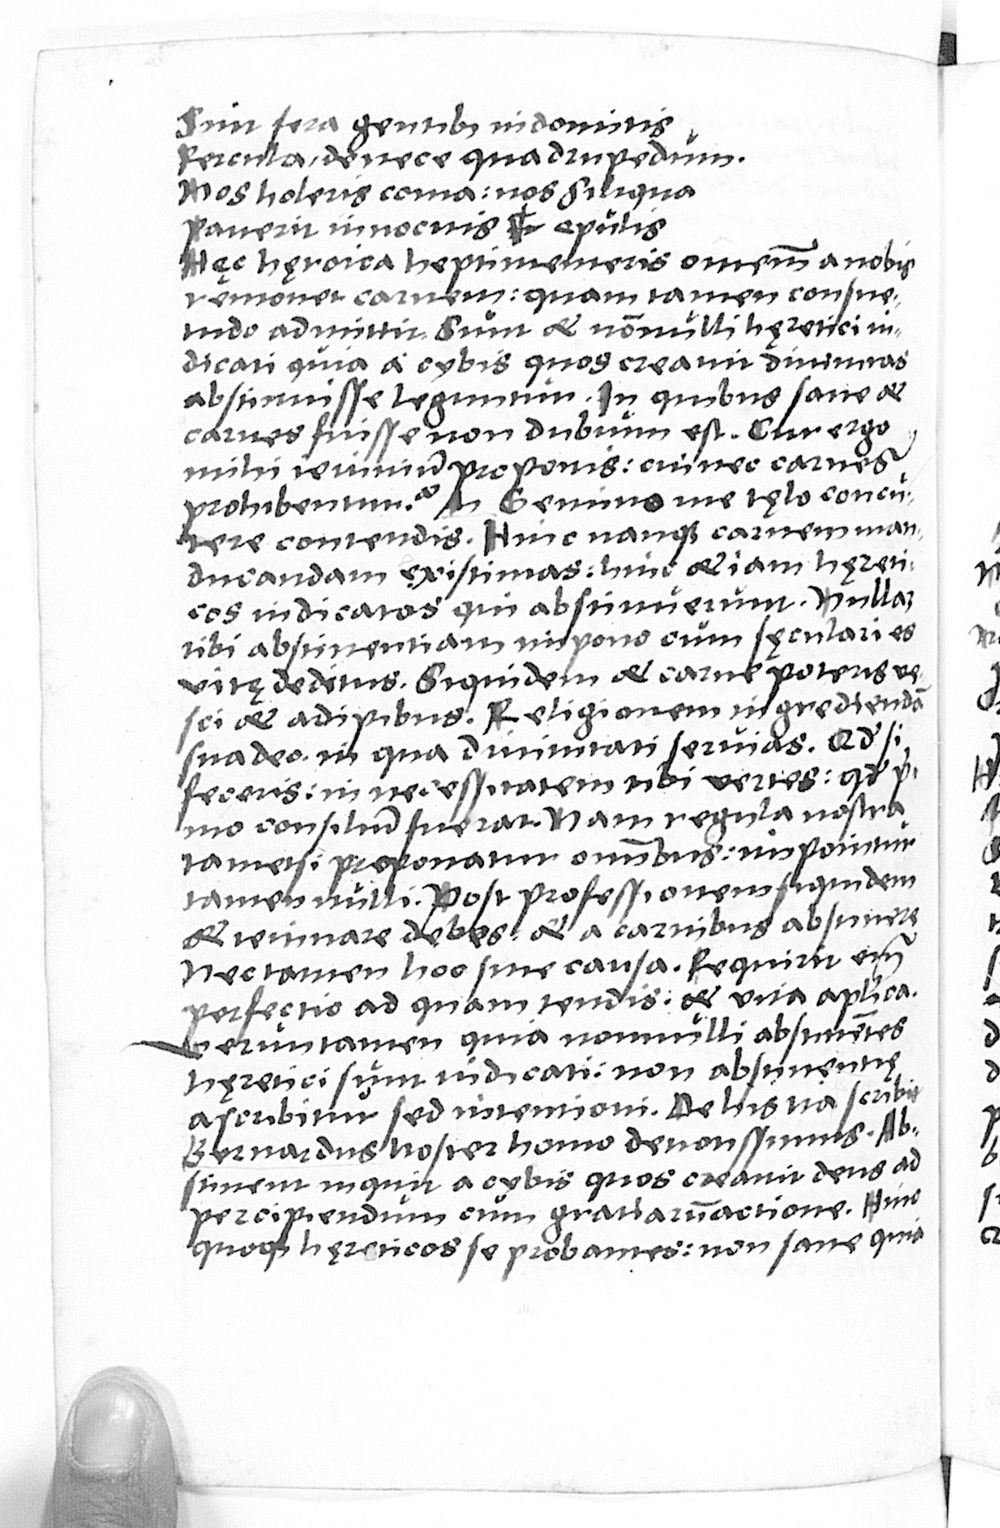 Sint fera gentib; indomitis
Fercula, de nece quadrupedum.
Nos holeris coma: nos siliqua
Paverit innocuis epulis
Hęc hęroica heptimemeris omnem̄ a nobis
removet carnem: quam tamen consue-
tudo admittit. Sunt & nōnulli hęretici iu-
dicati quia a cybis quos creavit divinitas
abstinuisse leguntur. In quibus sane &
carnes fuisse non dubium est. Cur ergo
mihi ieiuniū proponis: cū nec carnes
prohibentur. An Gemino me tęlo concu-
tere contendis. Hinc nanq; carnem man-
ducandam existimas: hinc & iam hęreti-
cos iudicatos qui abstinuerunt. Nullam
tibi abstinentiam impono cum sęculari es
vitę deditus. Siquidem & carne poteris ve-
sci & adipibus. Religionem ingrediendā
suadeo. in qua divinitati servias. Qd si
feceris: in necessitatem tibi vertes: qd p̄i-
mo consiliū fuerat. Nam regula nostra
tametsi proponatur omībus: imponitur
tamen nulli. Post professionem siquidem
& ieiunare debes: & a carnibus abstinere
Nec tamen hoc sine causa. Requirit em̄
perfectio ad quam tendis: & vita aplica.
Veruntamen quia nonnulli abstinētes
hęretici sunt iudicati: non abstinentię
ascribitur sed intentioni. De his ita scribit
Bernardus noster homo devotissimus. Ab-
stinent inquit a cybis quos creavit deus ad
percipiendum cum gratiarū actione. Hinc
quoq; hęreticos se probantes: non sane quia